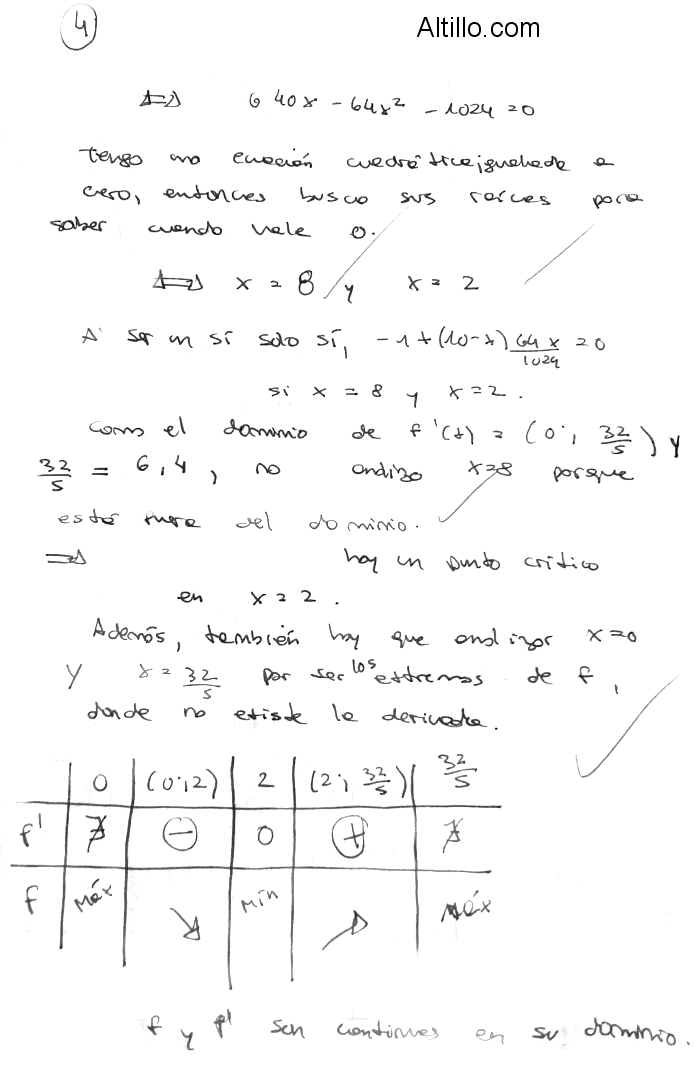 4
Altillo.com
⟺ 640x - 64x² - 1024 = 0
tengo una ecuación cuadrática igualada a
cero, entonces busco sus raíces para
saber cuando vale 0.
⟺ x = 8 y x = 2
Al ser un sí solo sí, -1 + (10-x) 64x/1024 = 0
si x = 8 y x = 2.
Como el dominio de f'(x) = (0; 32/5) y
32/5 = 6,4, no analizo x=8 porque
está fuera del dominio.
⟹ hay un punto crítico
en x = 2.
Además, también hay que analizar x=0
y x = 32/5 por ser los extremos de f,
donde no existe la derivada.
0 (0;2) 2 (2; 32/5) 32/5
f' ∄ - 0 + ∄
f Máx ↘ Mín ↗ Máx
f y f' son continuas en su dominio.